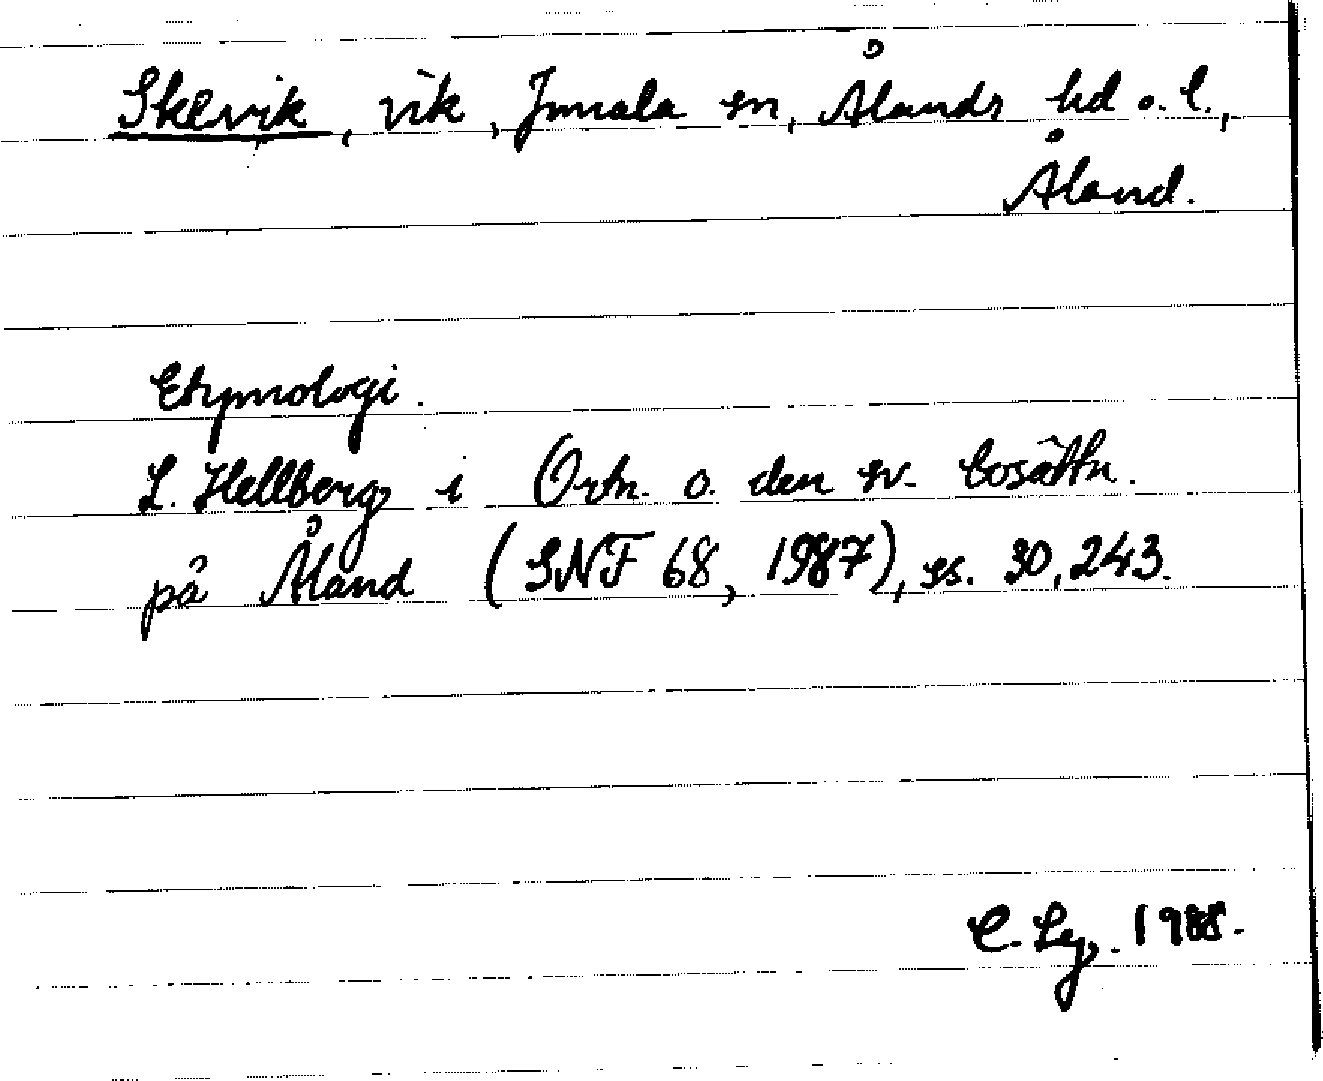 Skevik, vik, Jomala sn, Ålands hd o. l.,
Åland.
Etymologi.
L. Hellberg i Ortn. o. den sv. bosättn.
på Åland (SNF 68, 1987), ss. 30, 243.
C. Lg. 1988.